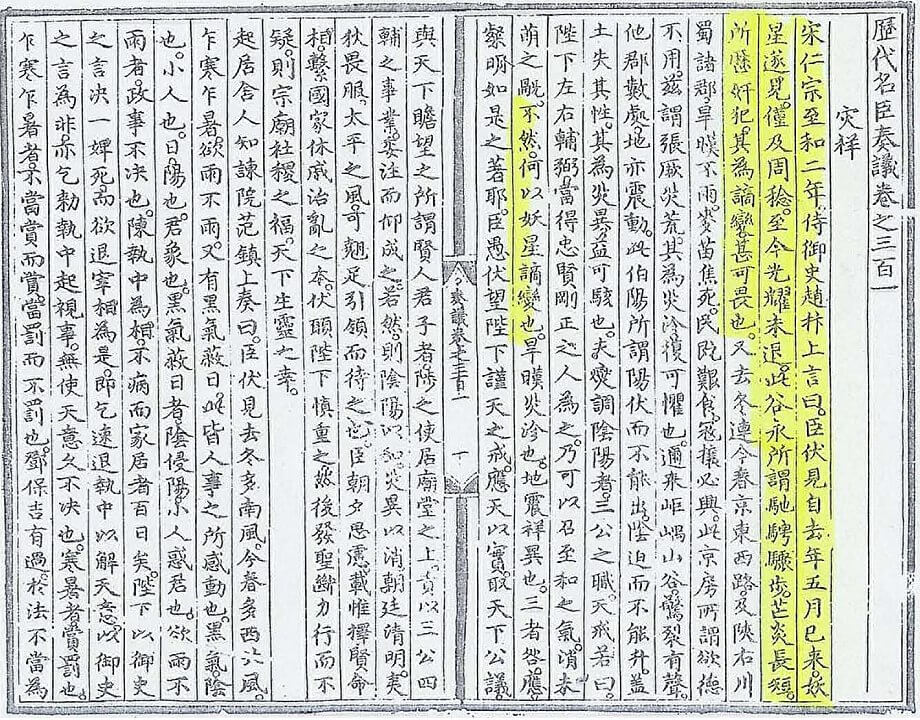 歷代名臣奏議卷之三百一
灾祥
宋仁宗至和二年侍御史趙抃上言曰臣伏見自去年五月已來妖
星遂見僅及周稔至今光耀未退此谷永所謂馳騁驟步芒炎長短
所歷奸犯其為謫變甚可畏也又去冬連今春京東西路及陝右川
蜀諸郡旱暵不雨麥苗焦死民既艱食冦攘必興此京房所謂欲德
不用茲謂張厥災荒其為災沴復可懼也邇來岠嵎山谷驚裂有聲
他郡數處地亦震動此伯陽所謂陽伏而不能出陰迫而不能升蓋
土失其性其為災異益可駭也夫燮調陰陽者三公之職天戒若曰
陛下左右輔弼當得忠賢剛正之人為之乃可以召至和之氣消未
萌之戲不然何以妖星謫變也旱暵災沴也地震祥異也三者咎應
粲明如是之著耶臣愚伏望陛下謹天之戒應天以實取天下公議
奏議卷之三百一
一
與天下瞻望之所謂賢人君子者陟之使居廟堂之上責以三公四
輔之事業委注而仰成之若然則陰陽以和災異以消朝廷清明夷
狄畏服太平之風可翹足引領而待之也臣朝夕思慮載惟擇賢命
相繫國家休戚治亂之本伏願陛下慎重之然後發聖斷力行而不
疑則宗廟社稷之福天下生靈之幸
起居舍人知諫院范鎮上奏曰臣伏見去冬多南風今春多西北風
乍寒乍暑欲雨不雨又有黑氣蔽日此皆人事之所感動也黑氣陰
也小人也日陽也君象也黑氣蔽日者陰侵陽小人惑君也欲雨不
雨者政事不決也陳執中為相不病而家居者百日矣陛下以御史
之言決一婢死而欲退宰相為是即乞速退執中以解天意以御史
之言為非亦乞勑執中起視事無使天意久不決也寒暑者賞罰也
乍寒乍暑者不當賞而賞當罰而不罰也鄧保吉有過於法不當為